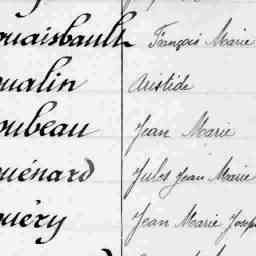 ouaisbault François Marie
ualin Aristide
oubeau Jean Marie
uénard Jules Jean Marie
uéry Jean Marie Josep